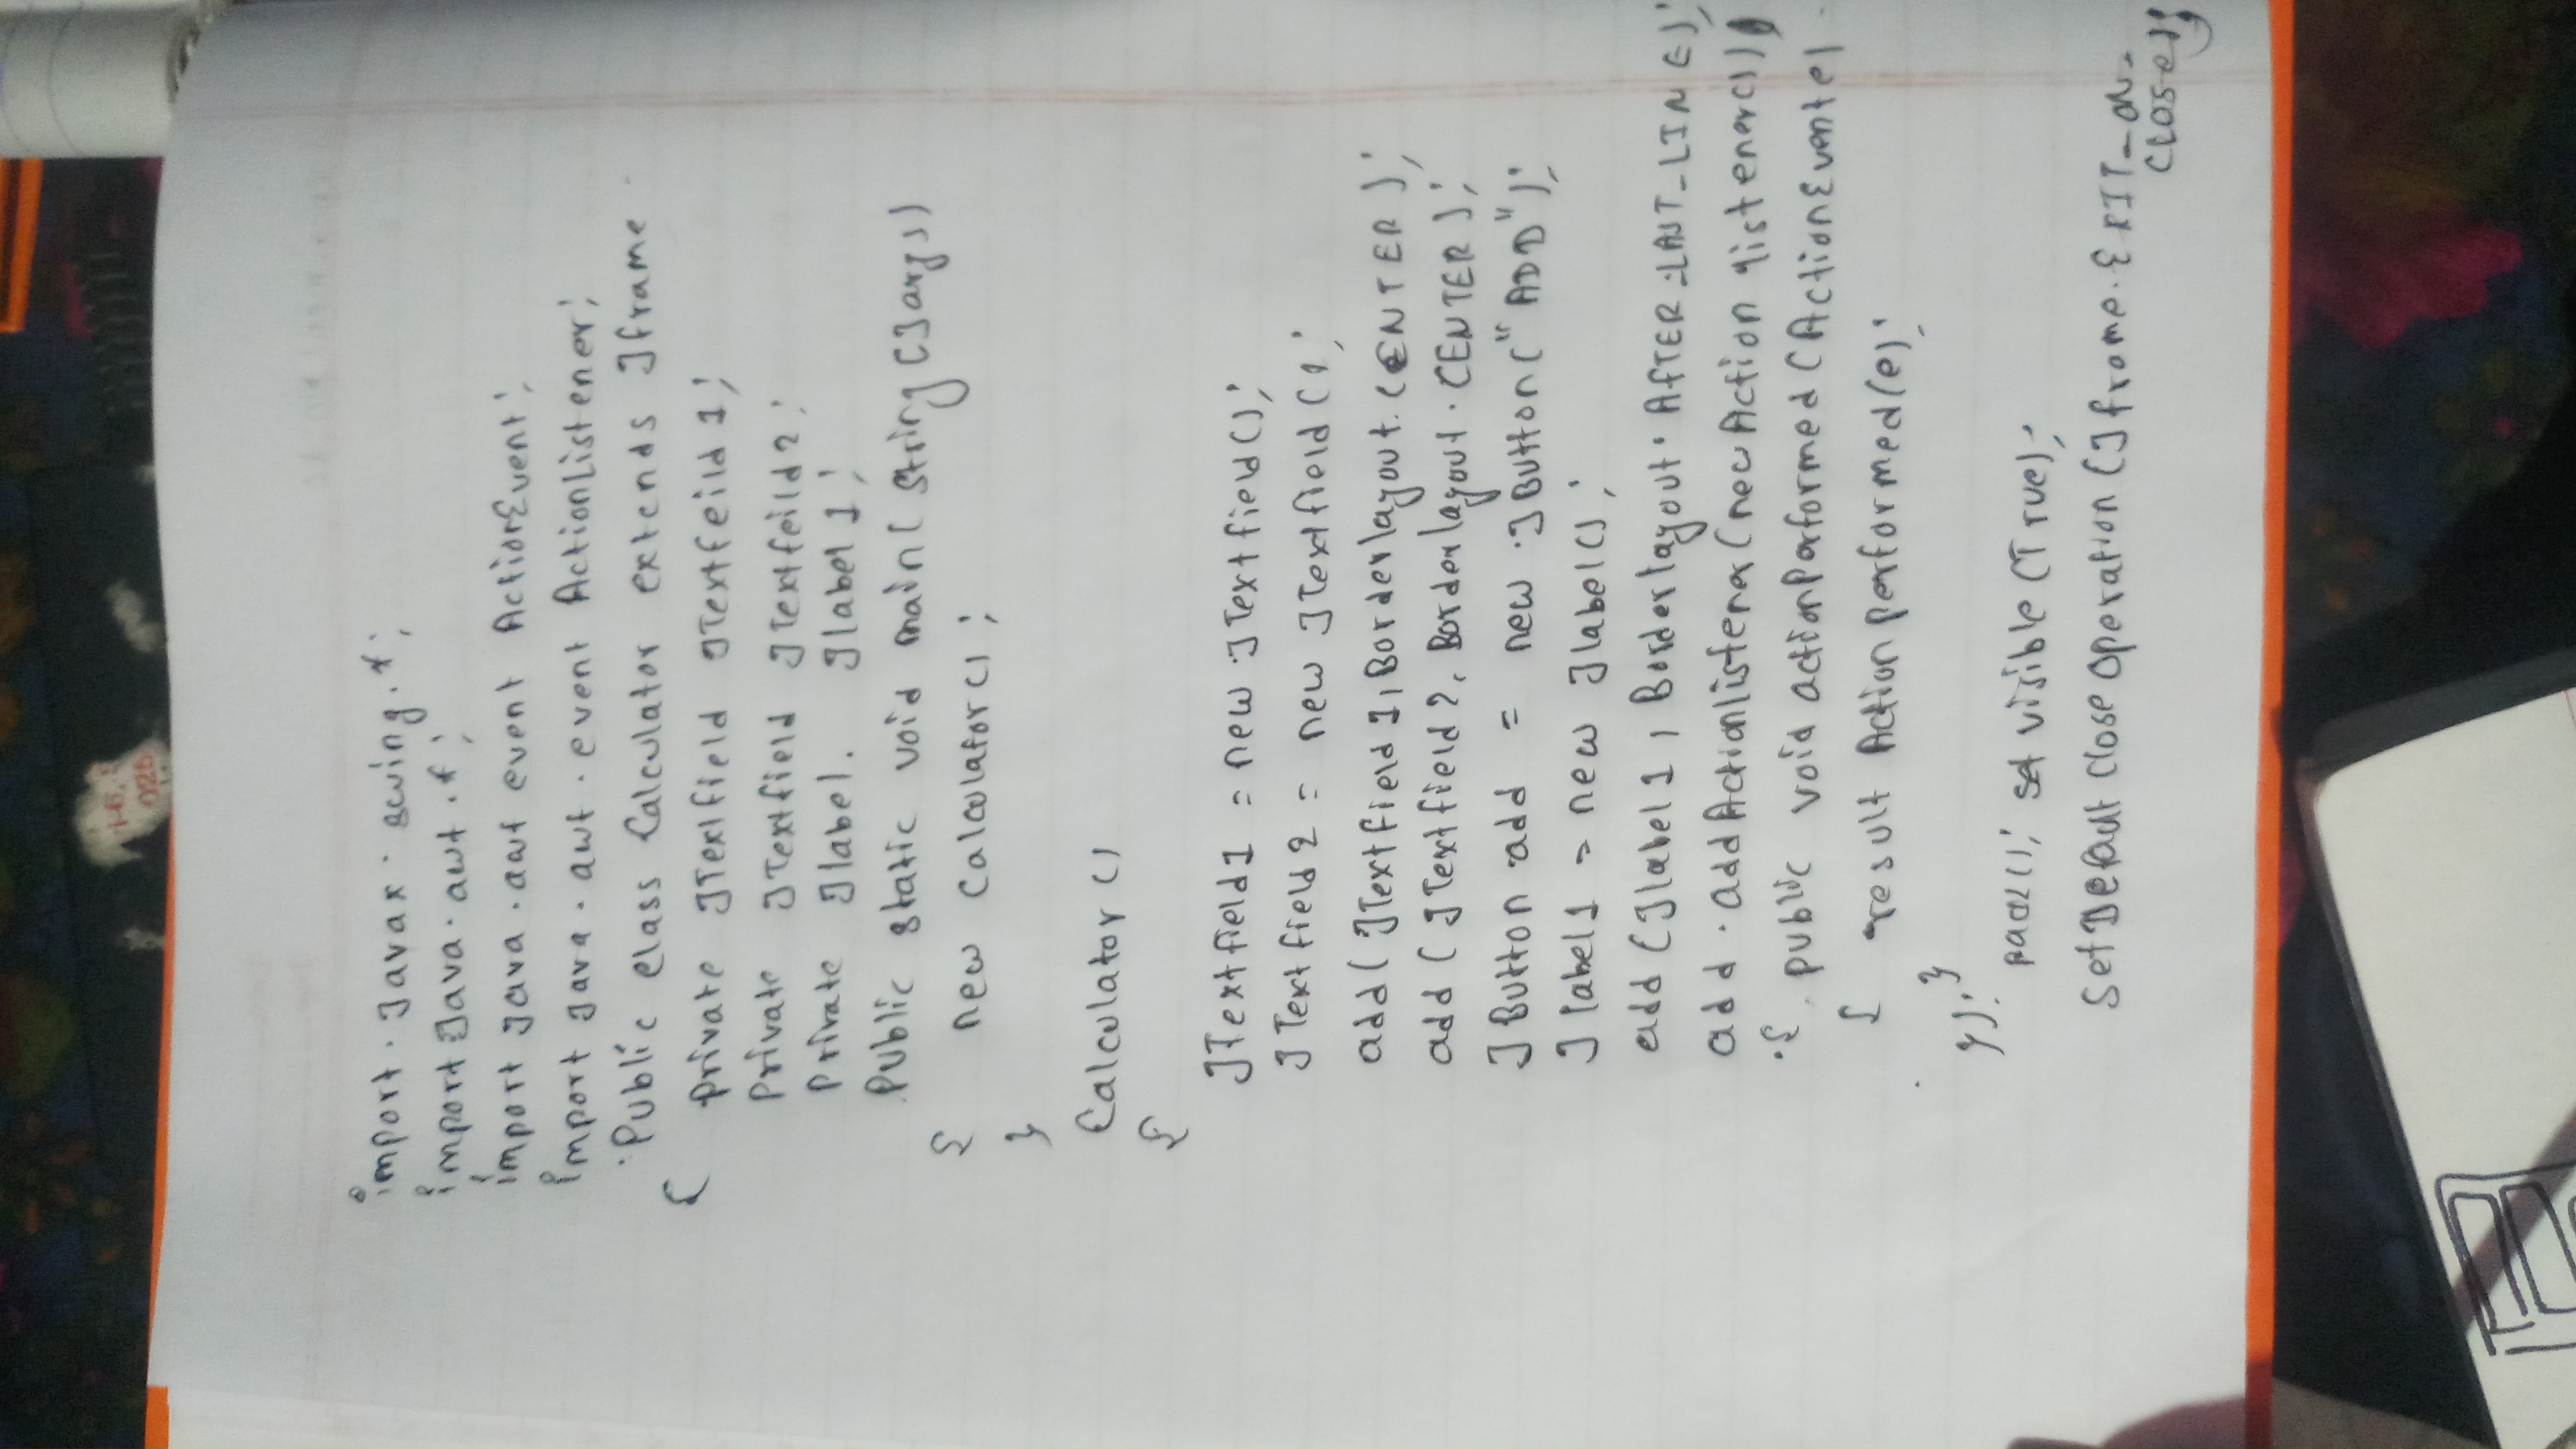 -16.
025
import . Javax . swing . *;
import Java . awt . *;
import java . awt event ActionEvent;
import java . awt . event ActionListener;
Public class Calculator extends Jframe
{ private JTextfield JTextfeild 1;
Private JTextfield JTextfeild 2;
Private Jlabel. Jlabel 1;
Public static void main( String []args)
{ new Calculator();
}
Calculator ()
{
JTextfield1 = new JTextfield();
JTextfield 2 = new JTextfield();
add( JTextfield 1, Borderlayout. CENTER );
add ( JTextfield 2, Borderlayout . CENTER );
JButton add = new JButton("ADD");
Jlabel1 = new Jlabel();
add (Jlabel 1, Borderlayout. AfTER_LAST_LINE);
add . addActionlistener (new Action listener())
{ public void actionPerformed (ActionEvent e)
{ result Action performed(e);
}
});
pack(); set visible (True);
Set Default Close Operation (Jframe. EXIT_ON_
CLOSE);